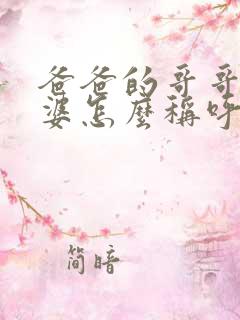 爸爸的哥哥
婆怎麼稱呼
簡暗